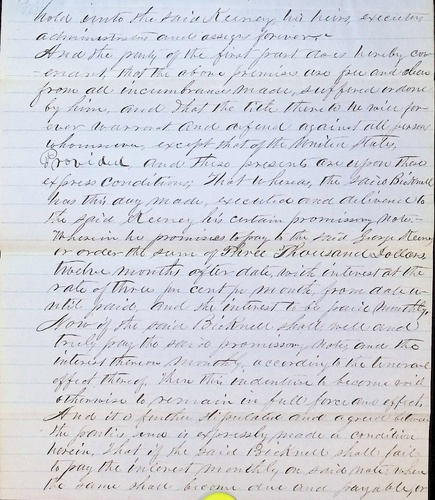 hold unto the said Keeney, his heirs, executors
administrators and assigns forever
And the party of the first part does hereby cov-
-enant, that the above premises are free and clear
from all incumbrances made, suffered or done
by him, and that the title thereto he will for-
ever warrant and defend against all persons
whomsoever, except that of the United States,
Provided, and these presents are upon these
express conditions; That whereas, the said Bicknell
has this day made, executed and delivered to
the said Keeney his certain promissory note,-
Wherein he promises to pay to the said George Keeney
or order the sum of Three Thousand Dollars
twelve months after date, with interest at the
rate of three per cent per month from date u-
-ntil paid, and the interest to be paid monthly,
Now if the said Bicknell shall well and
truly pay the said promissory note, and the
interest thereon monthly, according to the tenor and
effect thereof, then this indenture to become void
otherwise to remain in full force and effect
And it is further stipulated and agreed between
the parties, and is expressly made a condition
herein, That if the said Bicknell shall fail
to pay the interest monthly on said note when
the same shall become due and payable, or